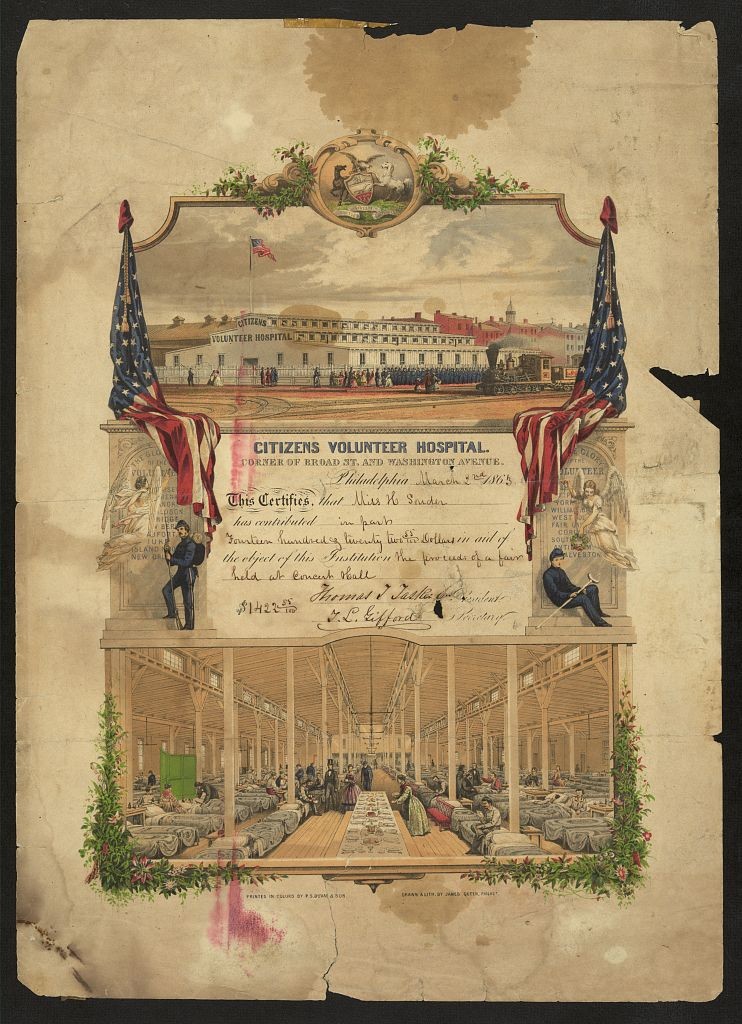 CITIZENS
VOLUNTEER HOSPITAL
CITIZENS VOLUNTEER HOSPITAL.
CORNER OF BROAD ST. AND WASHINGTON AVENUE.
Philadelphia March 2nd 1863
This Certifies, that Miss H Souder
has contributed in part
Fourteen hundred & twenty two 55/100 Dollars in aid of
the object of this Institution the proceeds of a fair
held at Concert Hall
Thomas T Tasker President
$1422 55/100
T. L. Gifford Secretary
PRINTED IN COLORS BY P.S. DUVAL & SON
DRAWN & LITH. BY JAMES QUEEN, PHILADA.